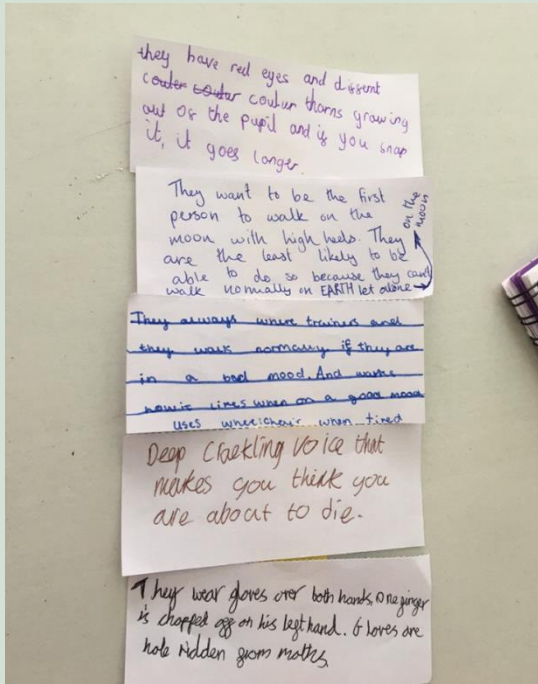 they have red eyes and dissent
couler couler coulur thorns growing
out of the pupil and if you snap
it, it goes longer.
They want to be the first
person to walk on the
moon with high heels. They
are the least likely to be
able to do so because they can't
walk normally on EARTH let alone
on the
moon
They always where trainers and
they walk normaly if they are
in a bad mood. And
when on a good mood
uses wheelchair when tired
Deep Crackling voice that
makes you think you
are about to die.
They wear gloves over both hands. One finger
is chopped off on his left hand. Gloves are
hole ridden from moths.